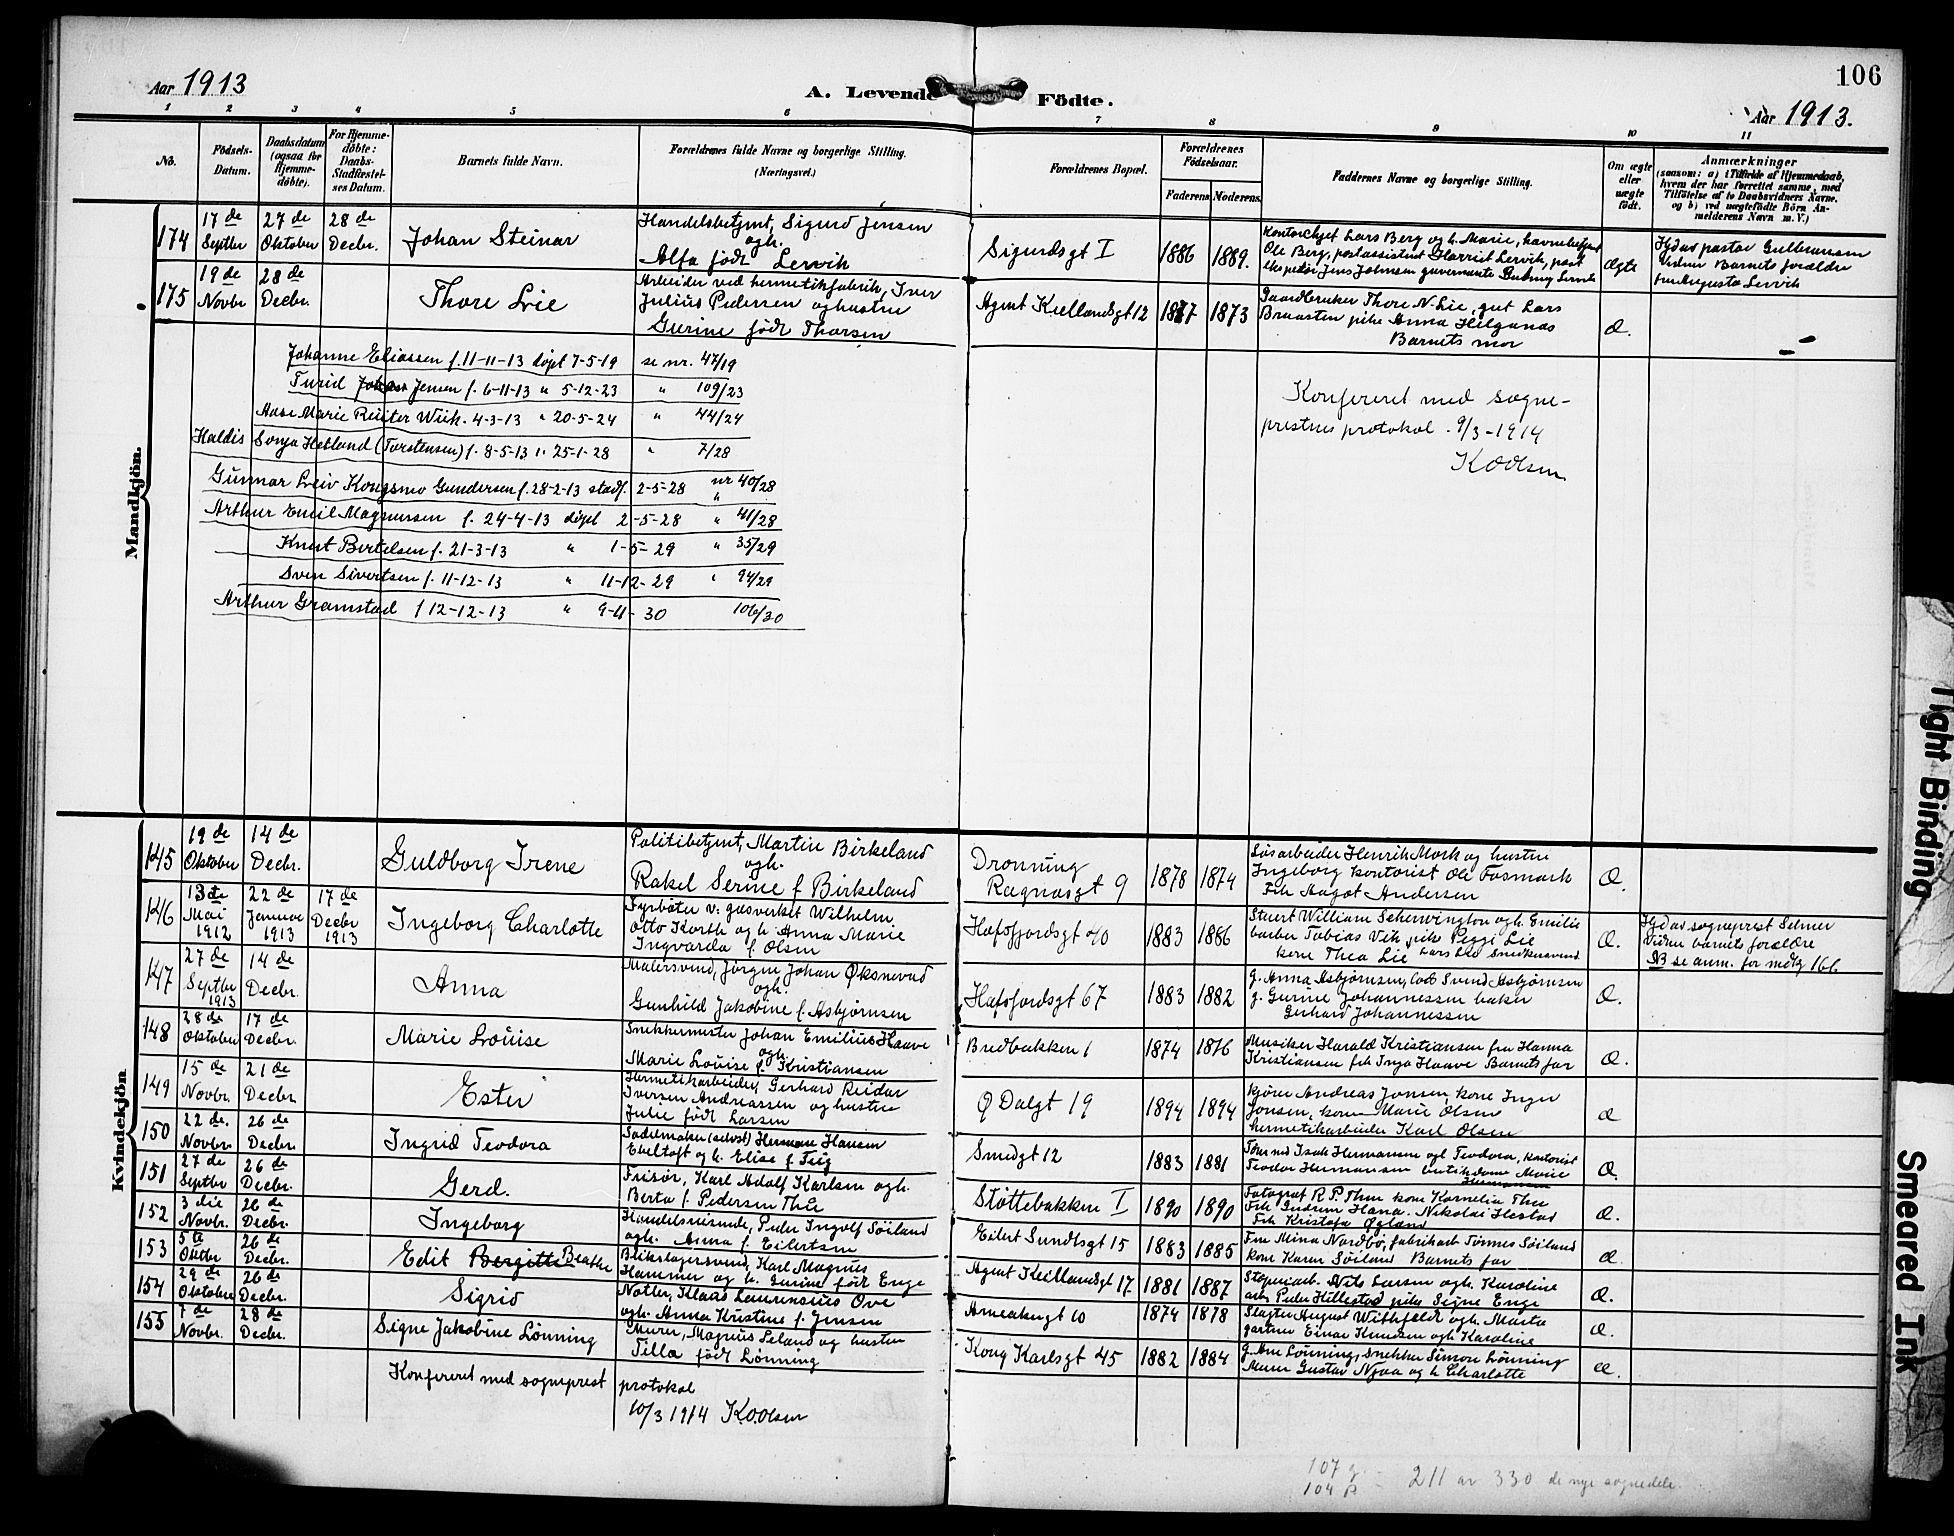 106
Aar 1913
A. Levende Födte.
Aar 1913.
1 2 3 4 5 6 7 8 9 10 11
No.
Födsels-Datum.
Daabsdatum (ogsaa for Hjemmedöbte).
For Hjemmedöbte: Daabs-Stadfæstelses Datum.
Barnets fulde Navn.
Forældrenes fulde Navne og borgerlige Stilling. (Næringsvei.)
Forældrenes Bopæl.
Forældrenes Födselsaar.
Faderens Moderens
Faddernes Navne og borgerlige Stilling.
Om ægte eller uægte födt.
Anmærkninger
(saasom: a) i Tilfælde af Hjemmedaab, hvem der har forrettet samme, med Tilföielse af to Daabsvidners Navne, og b) ved uægtefödte Börn Anmelderens Navn m. V.)
Mandkjön.
174 17de Septbr 27de Oktober 28de Decbr. Johan Steinar
Handelsbetjent, Sigurd Jensen
ogh.
Alfa født Lervik
Sigurdsgt I 1886 1889.
Kontorchef Lars Berg og h. Marie, havnebetjent
Ole Berg, postassistent Harriet Lervik, post
ægte
Hjd av pastor
Vidner Barnets forældre
fru Augusta Lervik
175 19de Novbr 28de Decbr. Thore Lie
Arbeider ved hermetikfabrik, Iver
Julius Pedersen og hustru
Gurine født Thorsen
Agent Kiellandsgt 12 1877 1873
Gaardbruker Thore N. Lie, gut Lars
Braasten pike Anna Helganas
Barnets mor
Æ.
Johanne Eliassen f. 11-11-13 døpt 7-5-19 se nr. 47/19
Turid Johan Jensen f. 6-11-13 " 5-12-23 " 109/23
Aase Marie Reüter Wiik. 4-3-13 " 20-5-24 " 44/24
Haldis Sonja Hetland (Torstensen) f. 8-5-13 " 25-1-28 " 7/28
Gunnar Leiv Kongsmo Gundersen f. 28-2-13 stadf. 2-5-28 nr 40/28
Arthur Emil Magnussen f. 24-4-13 døpt 2-5-28 " 41/28
Knut Bertelsen f. 21-3-13 " 1-5-29 " 35/29
Sven Sivertsen f. 11-12-13 " 11-12-29 " 94/29
Arthur Gramstad f 12-12-13 " 9-11-30 106/30
Konfereret med sogne-
prestens protokol. 9/3-1914
K.O.Olsen
Kvindekjön
145 19de Oktober 14de Decbr. Guldborg Irene
Politibetjent, Martin Birkeland
ogh.
Rakel Serine f Birkeland
Dronning
Ragnasgt 9 1878 1874
Løsarbeider Henrik Mork og hustru
Ingeborg kontorist Ole Fosmark
Frk Aagot Andersen
Æ.
146 13de Mai 1912 22de Januar 1913 17de Decbr 1913 Ingeborg Charlotte
Fyrbøter v. gasverket Wilhelm
Otto Korth og h. Anna Marie
Ingvarda f. Olsen
Hafsfjordsgt 40 1883 1886
Stuert William Scherwington ogh. Emilie
barber Tobias Vik, pike Peggi Lie
kone Thea Lie Lars Lie Snedkersvend
Æ.
Hjd av sogneprest Selmer
Vidner barnets forældre
NB se anm. for mdkj 166
147 27de Septbr 1913 14de Decbr. Anna
Malersvend, Jørgen Johan Øksnevad
ogh.
Gunhild Jakobine f. Asbjørnsen
Hafsfjordsgt 67 1883 1882
g. Anna Asbjørnsen, lods Svend Asbjørnsen
g. Gurine Johannessen baker
Gerhard Johannessen
Æ.
148 28de Oktober 17de Decbr. Marie Louise
Snekkermester Johan Emilius Haave
ogh.
Marie Louise f. Kristiansen
Bredbakken 1 1874 1876
Musiker Harald Kristiansen fru Hanna
Kristiansen frk Inga Haave Barnets far
Æ.
149 15de Novbr. 21de Decbr Ester
Hermetikarbeider, Gerhard Reidar
Iversen Andreassen og hustru
Julie født Larsen
Ø Dalgt 19 1894 1894
kjører Andreas Jonsen, kone Inger
Jonsen, kone Marie Olsen
hermetikarbeider Karl Olsen
æ
150 22de. Novbr. 26de Decbr. Ingrid Teodora
Sadelmaker (selvst) Herman Hansen
Ebeltoft og h. Elise f. Feig
Smedgt 12 1883 1881
Teodor Hermansen butikdame Marie
Hermansen
Æ.
151 27de Septbr 26de Decbr. Gerd.
Frisør, Karl Adolf Karlsen ogh.
Berta f. Pedersen Thu
Støttebakken I 1890 1890
Fotograf R. P. Thu kone Kornelia Thu
Frk Gudrun Hana. Nikolai Hestad
Frk Kristofa Øgland
Æ.
152 3die Novbr. 26de Decbr. Ingeborg
Handelsreisende, Peder Ingolf Söiland
ogh. Anna f. Eilertsen
Eilert Sundtsgt 15 1883 1885
Fru Mina Nordbø, fabrikarb Tønnes Søiland
kone Karen Søiland Barnets far
Æ.
153 5te Oktbr 26de Decbr. Edit Bergitte Beathe
Blikslagersvend, Karl Magnus
Hammer og h. Gurine født Enge
Agent Kiellandsgt 17 1881 1887
Støperiarb. Nils Larsen ogh. Karoline
arb Peder Hillestad pike Signe Enge
Æ.
154 29de Oktober 26de Decbr. Sigrid
Notler, Klaas Laurensius Ove
ogh. Anna Kristine f. Jensen
10 1874 1878
Slagter August Withfeldt ogh. Marta
gartner Einar Knudsen ogh Karoline
Æ.
155 7de Novbr. 28de Decbr. Signe Jakobine Lönning
Murer, Magnus Seland og hustru
Tilla født Lønning
Kong Karlsgt 45 1882 1884
g. Ane Lönning, Snekker Simon Lönning
Murer Gustav Njaa og h Charlotte
æ.
Konfereret med sogneprest protokol
10/3 1914 K.O.Olsen
107 g.
104 p.
- 211 av 330 de nye sognedele.
Tight Binding
Smeared Ink